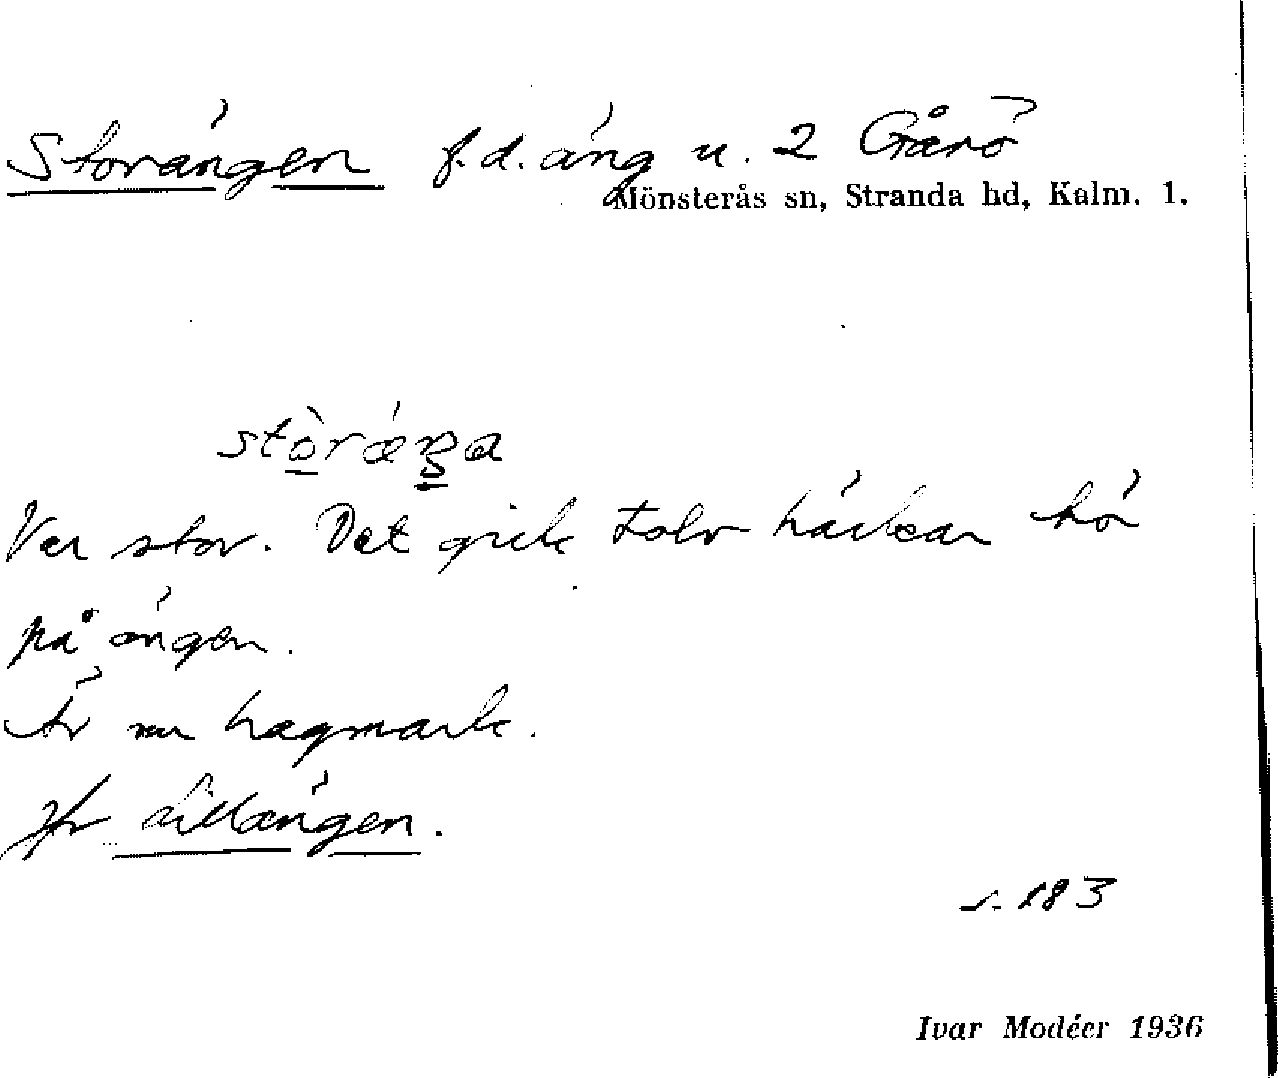 Storängen f.d. äng u. 2 Gårö
Mönsterås sn, Stranda hd, Kalm. l.
stòrǽŋa
Var stor. Det gick tolv härkar hö
på ängen.
Är nu hagmark.
Jfr Lillängen.
s. 183
Ivar Modéer 1936